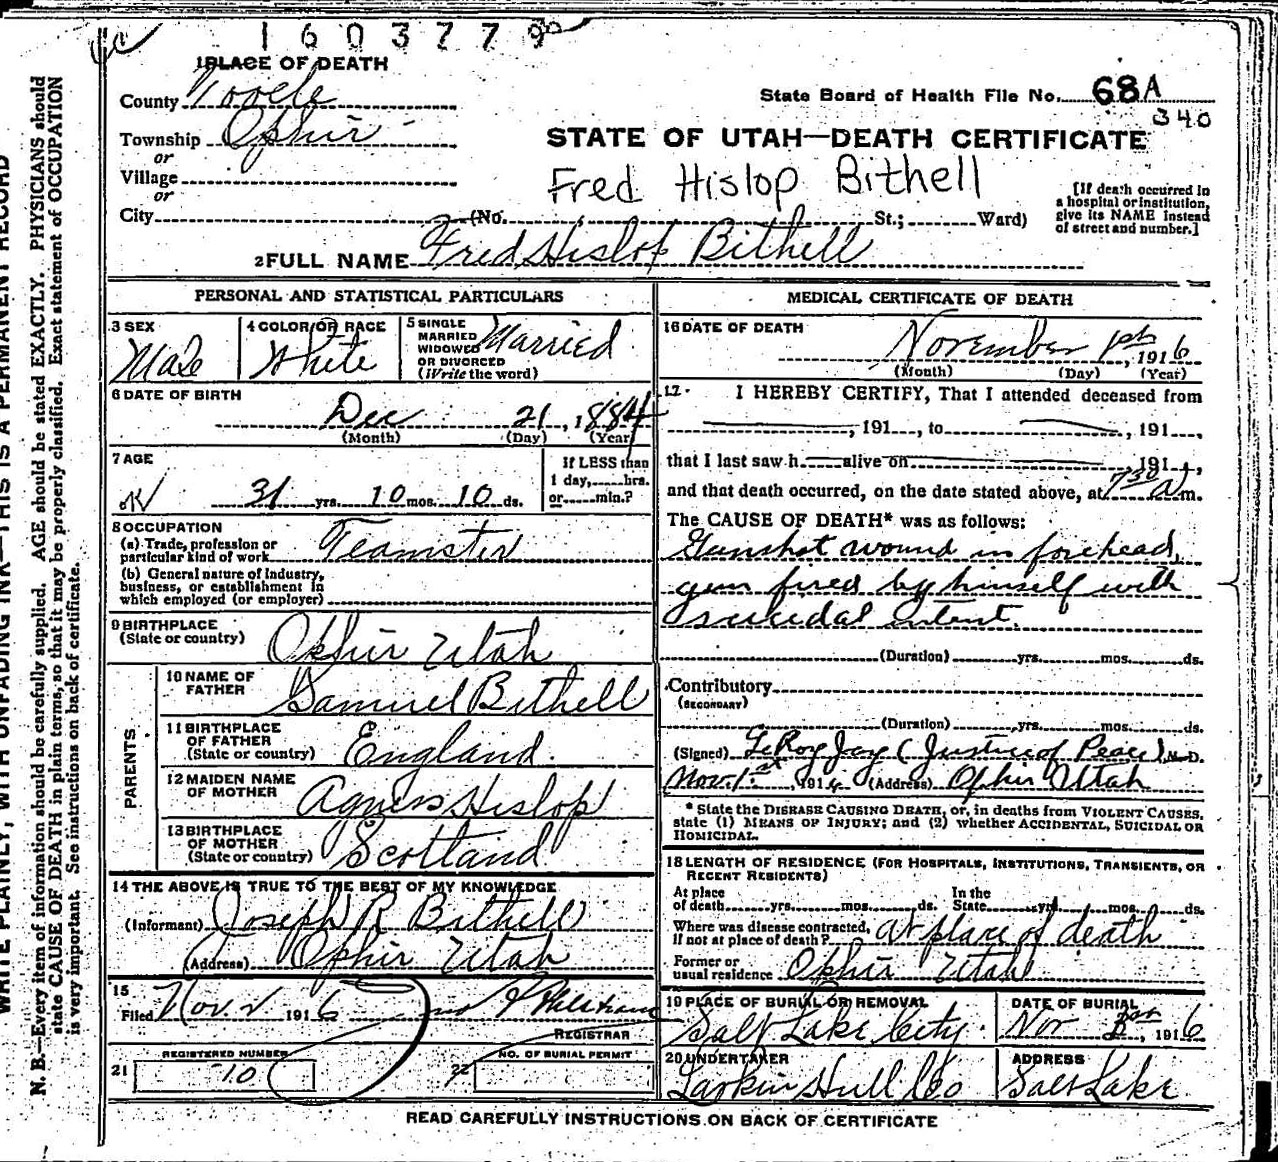 1603779
1 PLACE OF DEATH
County Tooele
State Board of Health File No. 68A
340
Township Ophir
or
Village
or
City (No. St.; Ward)
STATE OF UTAH—DEATH CERTIFICATE
Fred Hislop Bithell
[If death occurred in
a hospital or institution,
give its NAME instead
of street and number.]
2 FULL NAME Fred Hislop Bithell
PERSONAL AND STATISTICAL PARTICULARS
3 SEX
Male
4 COLOR OR RACE
White
5 SINGLE
MARRIED
WIDOWED
OR DIVORCED
(Write the word)
Married
6 DATE OF BIRTH
Dec 21, 1884
(Month) (Day) (Year)
7 AGE
31 yrs. 10 mos. 10 ds.
If LESS than
1 day, hrs.
or min.?
8 OCCUPATION
(a) Trade, profession or
particular kind of work Teamster
(b) General nature of industry,
business, or establishment in
which employed (or employer)
9 BIRTHPLACE
(State or country) Ophir Utah
PARENTS
10 NAME OF
FATHER Samuel Bithell
11 BIRTHPLACE
OF FATHER
(State or country) England.
12 MAIDEN NAME
OF MOTHER Agness Hislop
13 BIRTHPLACE
OF MOTHER
(State or country) Scotland
14 THE ABOVE IS TRUE TO THE BEST OF MY KNOWLEDGE
(Informant) Joseph R Bithell
(Address) Ophir Utah
15
Filed Nov. 2 1916
REGISTRAR
REGISTERED NUMBER
21 10
NO. OF BURIAL PERMIT
22
MEDICAL CERTIFICATE OF DEATH
16 DATE OF DEATH
November 1st, 1916
(Month) (Day) (Year)
17. I HEREBY CERTIFY, That I attended deceased from
, 191 , to , 191 ,
that I last saw h alive on 191 ,
and that death occurred, on the date stated above, at 7 30 A m.
The CAUSE OF DEATH* was as follows:
Gunshot wound in forehead,
gun fired by himself with
suicidal intent.
(Duration) yrs. mos. ds.
Contributory
(SECONDARY)
(Duration) yrs. mos. ds.
(Signed) LeRoy Jay (Justice of Peace) M. D.
Nov. 1st, 1916 (Address) Ophir Utah
* State the DISEASE CAUSING DEATH, or, in deaths from VIOLENT CAUSES,
state (1) MEANS OF INJURY; and (2) whether ACCIDENTAL, SUICIDAL OR
HOMICIDAL.
18 LENGTH OF RESIDENCE (FOR HOSPITALS, INSTITUTIONS, TRANSIENTS, OR
RECENT RESIDENTS)
At place
of death yrs. mos. ds.
In the
State yrs. mos. ds.
Where was disease contracted,
if not at place of death? at place of death
Former or
usual residence Ophir Utah
19 PLACE OF BURIAL OR REMOVAL
Salt Lake City.
DATE OF BURIAL
Nov 1916
20 UNDERTAKER
Larkin Hull Co
ADDRESS
Salt Lake
READ CAREFULLY INSTRUCTIONS ON BACK OF CERTIFICATE
WRITE PLAINLY, WITH UNFADING INK—THIS IS A PERMANENT RECORD
N. B.—Every item of information should be carefully supplied. AGE should be stated EXACTLY. PHYSICIANS should
state CAUSE OF DEATH in plain terms, so that it may be properly classified. Exact statement of OCCUPATION
is very important. See instructions on back of certificate.